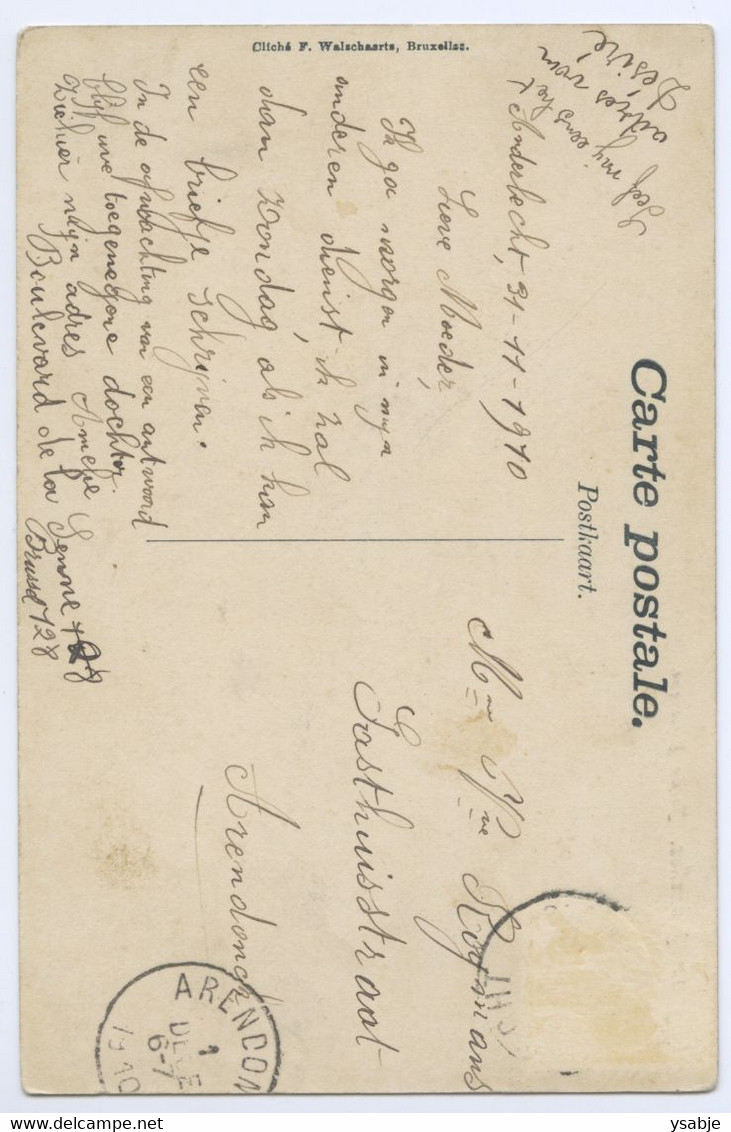 Carte postale.
Postkaart.
Cliché F. Walschaerts, Bruxelles.
Geef mij eens het
adres van
Désiré
Anderlecht, 31-11-1910
Lieve Moeder,
Ik ga morgen in mijn
anderen dienst ik zal
dan Zondag, als ik kan
een briefje schrijven.
In de afwachting van een antwoord
blijf uwe toegenegene dochter.
Ziehier mijn adres Amelie
Boulevard de la Senne 128
Brussel 128
Me Vve Kooymans
Gasthuisstraat
Arendonck
ARENDON
1
DEC
6-7
1910
ysabje